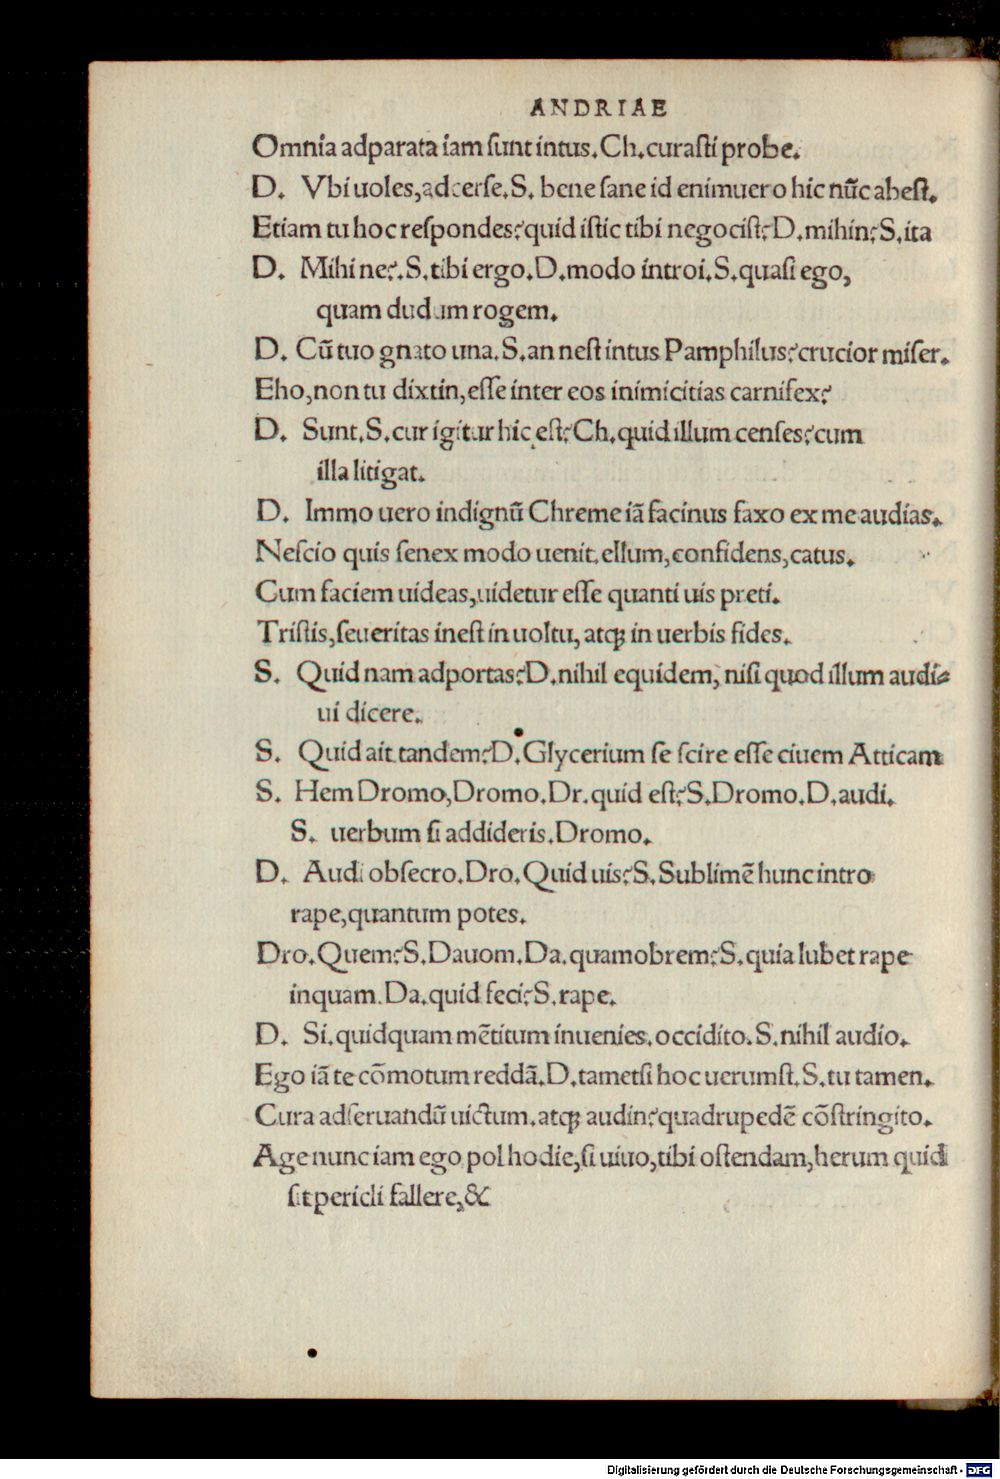 ANDRIAE
Omnia adparata iam sunt intus. Ch. curasti probe.
D. Vbi uoles, adcerse. S. bene sane id enimuero hic nūc abest.
Etiam tu hoc respondes? quid istic tibi negocist? D. mihin? S. ita
D. Mihi ne?. S. tibi ergo. D. modo introi. S. quasi ego,
quam dudum rogem.
D. Cū tuo gnato una. S. an nest intus Pamphilus? crucior miser.
Eho, non tu dixtin, esse inter eos inimicitias carnifex?
D. Sunt. S. cur igitur hic est? Ch. quid illum censes? cum
illa litigat.
D. Immo uero indignū Chreme iā facinus faxo ex me audias.
Nescio quis senex modo uenit. ellum, confidens, catus.
Cum faciem uideas, uidetur esse quanti uis preti.
Tristis, seueritas inest in uoltu, atq; in uerbis fides.
S. Quid nam adportas? D. nihil equidem, nisi quod illum audi-
ui dicere.
S. Quid ait tandem? D. Glycerium se scire esse ciuem Atticam
S. Hem Dromo, Dromo. Dr. quid est? S. Dromo. D. audi.
S. uerbum si addideris. Dromo.
D. Audi obsecro. Dro. Quid uis? S. Sublimē hunc intro
rape, quantum potes.
Dro. Quem? S. Dauom. Da. quamobrem? S. quia lubet rape
inquam. Da. quid feci? S. rape.
D. Si. quidquam mētitum inuenies. occidito. S. nihil audio.
Ego iā te cōmotum reddā. D. tametsi hoc uerumst. S. tu tamen.
Cura adseruandū uictum. atq; audin? quadrupedē cōstringito.
Age nunc iam ego pol hodie, si uiuo, tibi ostendam, herum quid
sit pericli fallere, &
Digitalisierung gefördert durch die Deutsche Forschungsgemeinschaft - DFG